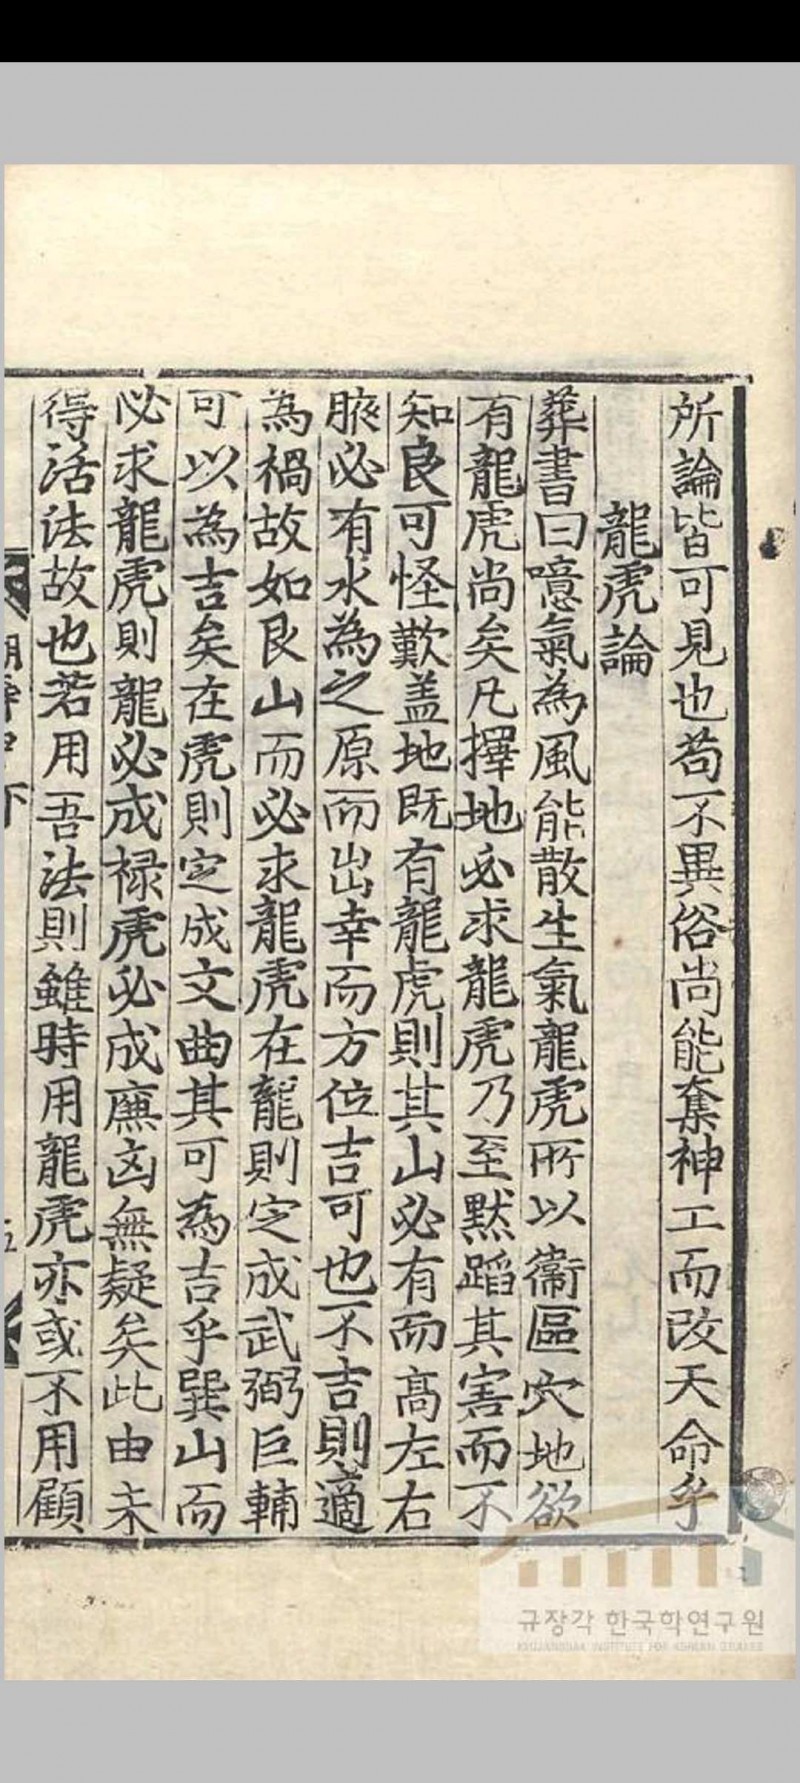 所論皆可見也苟不異俗尚能奪神工而改天命乎
龍虎論
葬書曰噫氣為風能散生氣龍虎所以衛區穴地欲
有龍虎尚矣凡擇地必求龍虎乃至黙蹈其害而不
知良可怪歎盖地既有龍虎則其山必有而高左右
腋必有水為之原而出幸而方位吉可也不吉則適
為禍故如艮山而必求龍虎在龍則定成武弼巨輔
可以為吉矣在虎則定成文曲其可為吉乎巽山而
必求龍虎則龍必成禄虎必成廉凶無疑矣此由未
得活法故也若用吾法則雖時用龍虎亦或不用顧
규장각 한국학연구원
KYUJANGGAK INSTITUTE FOR KOREAN STUDIES